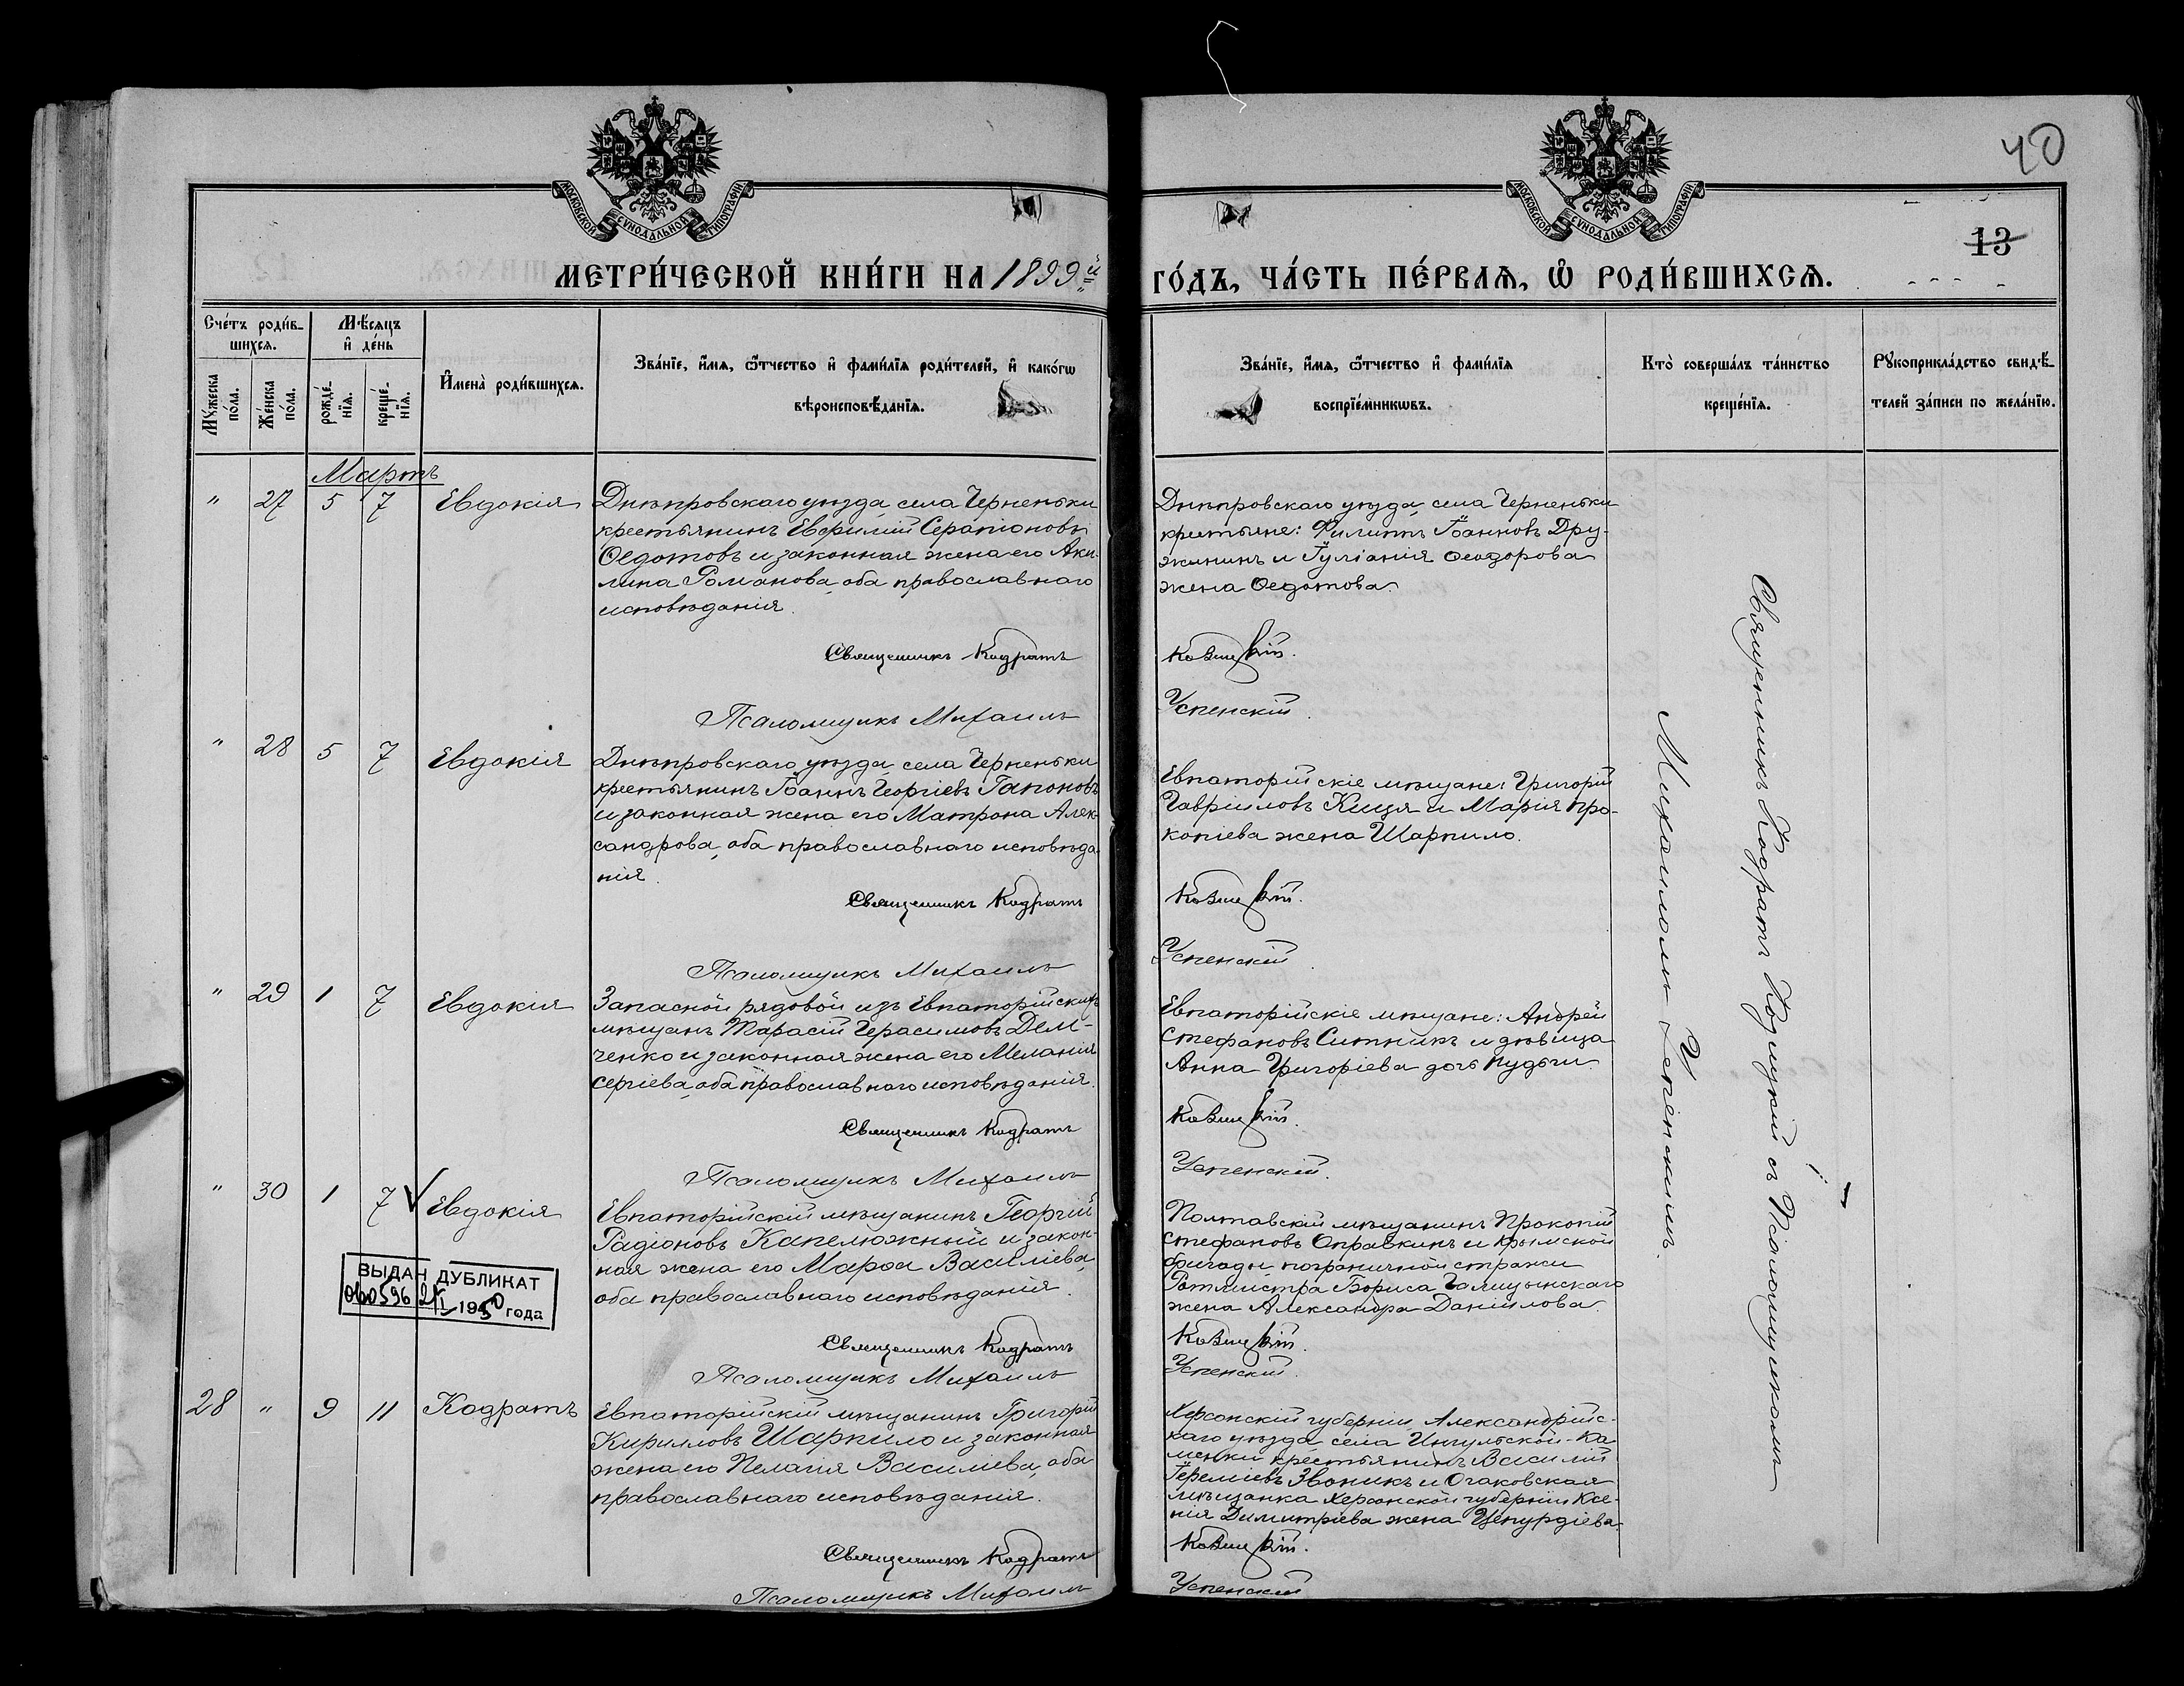 40
МОСКОВСКОЙ СѴНОДАЛЬНОЙ ТИПОГРАФІИ
МОСКОВСКОЙ СѴНОДАЛЬНОЙ ТИПОГРАФІИ
13
МЕТРИ́ЧЕСКОЙ КНИ́ГИ НА 1899й
ГО́ДЪ, ЧА́СТЬ ПЕ́РВАѦ, Ѡ҆ РОДИ́ВШИХСѦ.
Сче́тъ роди́в-
шихсѧ.
Мꙋ́жеска по́ла.
Же́нска по́ла.
Мѣ́сѧцъ
и҆ де́нь
рожде́-нїѧ.
креще́-нїѧ.
И҆мена̀ роди́вшихсѧ.
Зва́нїе, и҆́мѧ, ѻ҆́тчество и҆ фами́лїѧ роди́телей, и҆ како́гѡ
вѣроисповѣ́данїѧ.
Зва́нїе, и҆́мѧ, ѻ҆́тчество и҆ фами́лїѧ
воспрїе́мникѡвъ.
Кто̀ соверша́лъ та́инство
креще́нїѧ.
Рꙋкоприкла́дство свидѣ́-
телей за́писи по жела́нїю.
Мартъ
" 27 5 7 Евдокія
Днѣпровскаго уѣзда, села Черненьки
крестьянинъ Евфимій Серапіоновъ
Ѳедотовъ и законная жена его Аки-
лина Романова, оба православнаго
исповѣданія.
Священникъ Кодратъ
Псаломщикъ Михаилъ
Днѣпровскаго уѣзда, села Черненьки
крестьяне: Филиппъ Іоанновъ Дру-
жининъ и Іуліанія Ѳеодорова
жена Ѳедотова.
Успенскій.
" 28 5 7 Евдокія
Днѣпровскаго уѣзда, села Черненьки
крестьянинъ Іоаннъ Георгіевъ Гапоновъ
и законная жена его Матрона Алек-
сандрова, оба православнаго исповѣда-
нія.
Священникъ Кодратъ
Псаломщикъ Михаилъ
Евпаторійскіе мѣщане: Григорій
Гавріиловъ Кищя и Марія Про-
копіева жена Шарпило.
Успенскій.
" 29 1 7 Евдокія
Запасной рядовой изъ Евпаторійскихъ
мѣщанъ Тарасій Герасимовъ Дем-
ченко и законная жена его Меланія
Сергіева, оба православнаго исповѣданія.
Священникъ Кодратъ
Псаломщикъ Михаилъ
Евпаторійскіе мѣщане: Андрей
Стефановъ Ситникъ и дѣвица
Анна Григоріева дочь Кудги.
Успенскій.
" 30 1 7 Евдокія
Евпаторійскій мѣщанинъ Георгій
Радіоновъ Капелюжный и закон-
ная жена его Марѳа Василіева,
оба православнаго исповѣданія.
Священникъ Кодратъ
Псаломщикъ Михаилъ
ВЫДАН ДУБЛИКАТ
060596 1950 года
Полтавскій мѣщанинъ Прокопій
Стефановъ Оправкинъ и Крымской
бригады пограничной стражи
Ротмистра Бориса Голицынскаго
жена Александра Даніилова.
Успенскій.
28 " 9 11 Кодратъ
Евпаторійскій мѣщанинъ Григорій
Кирилловъ Шарпило и законная
жена его Пелагія Василіева, оба
православнаго исповѣданія.
Священникъ Кодратъ
Псаломщикъ Михаилъ
Херсонскій губерніи, Александрійс-
каго уѣзда, села Ингульской-Ка-
менки крестьянинъ Василій
Іереміевъ Звоникъ и Очаковская
мѣщанка Херсонской губерніи Ксе-
нія Димитріева жена Цепурдіева.
Успенскій
Священникъ Кодратъ съ Псаломщикомъ
Михаиломъ Успенскимъ.